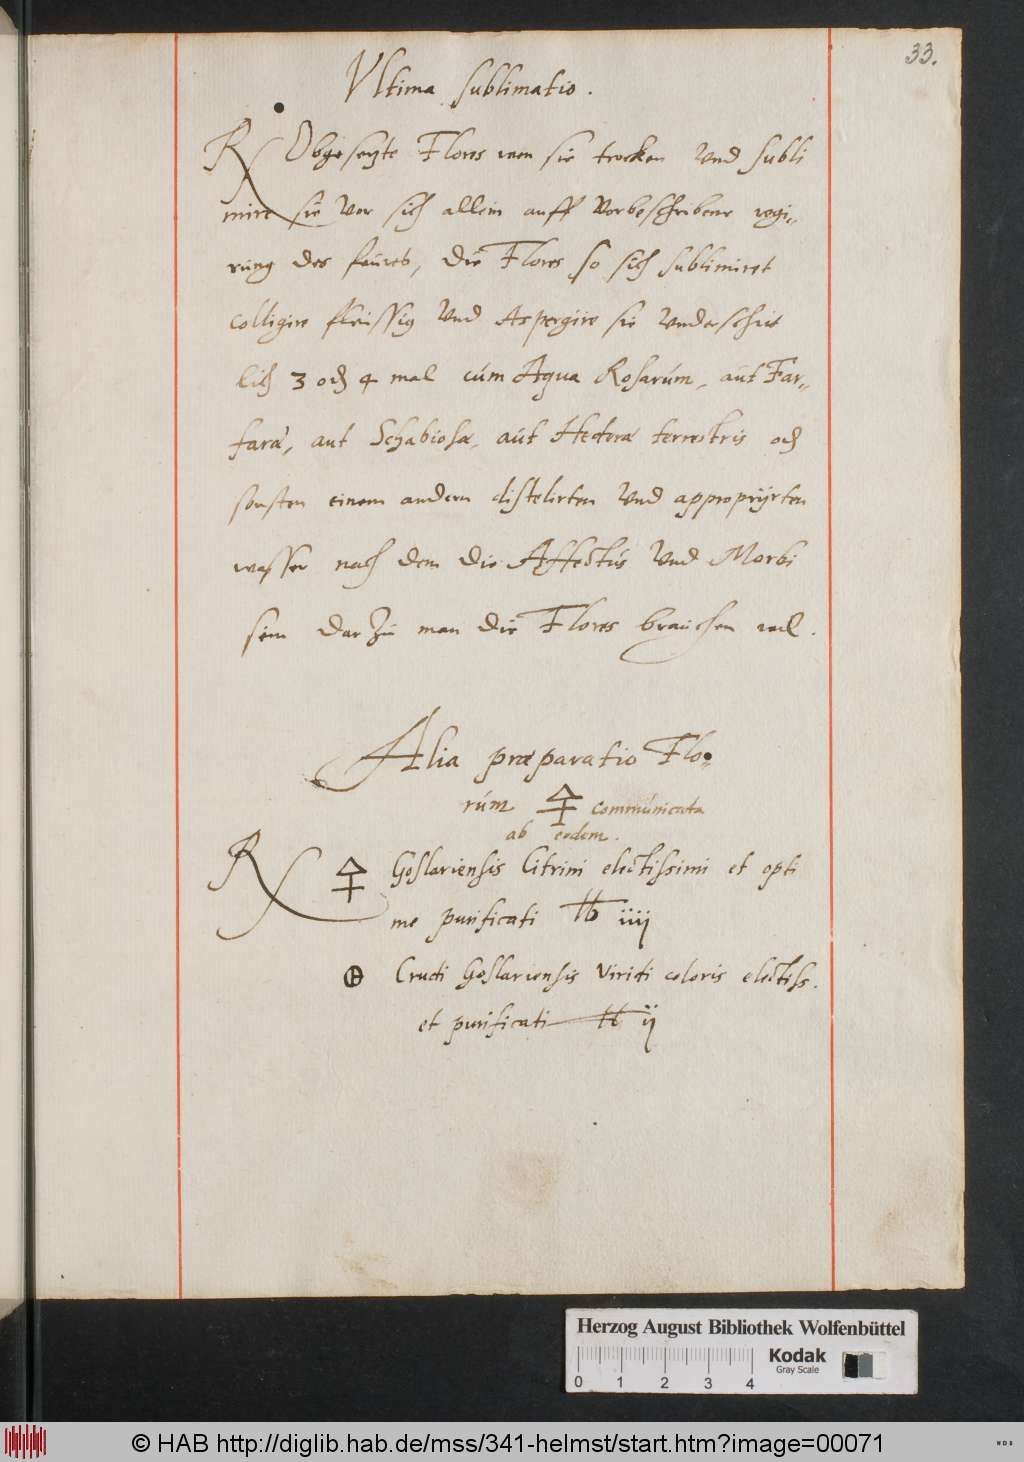 33.
Ultima sublimatio.
℞ Obgesezte Flores wen sie trocken Und subli
mire sie vor sich allein auff Vorbeschribene regi-
rung des feures, die Flores so sich sublimiret
colligire fleissig Und Aspergire sie Underschit
lich 3 oder 4 mal cúm Aqua Rosarúm, aút Far-
faræ, aut Schabiosæ, aút Hederæ terrestris oder
sonsten einem andern distelirten Und appropryrten
wasser nach dem die Affectús Und Morbi
sein dar zú man die Flores braúchen wil.
Alia præparatio Flo-
rúm 🜍 commúnicata
ab eodem.
℞ 🜍 Goslariensis Citrini electissimi et opti
me purificati ℔ iiij
🜨 Crudi Goslariensis Viridi coloris electiss.
et purificati ℔ ij
Herzog August Bibliothek Wolfenbüttel
0 1 2 3 4
Kodak
Gray Scale
© HAB http://diglib.hab.de/mss/341-helmst/start.htm?image=00071
WDB